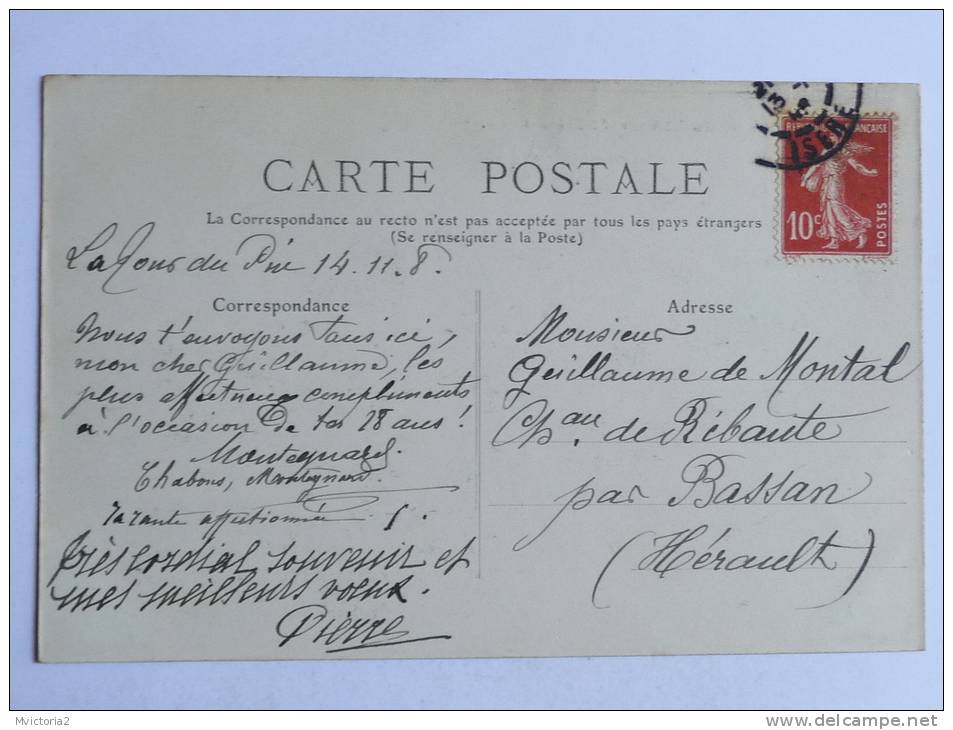 CARTE POSTALE
La Correspondance au recto n'est pas acceptée par tous les pays étrangers
(Se renseigner à la Poste)
ISERE
FRANÇAISE
10c
POSTES
La Tour du Pin 14.11.8.
Correspondance
Nous t'envoyons tous ici,
mon cher Guillaume, les
plus affectueux compliments
à l'occasion de tes 18 ans!
Monteynard.
Chabons, Monteynard.
Ta tante affectionnée
très cordial souvenir et
mes meilleurs voeux.
Pierre
Adresse
Monsieur
Guillaume de Montal
Chau. de Ribaute
par Bassan
(Hérault)
Mvictoria2
www.delcampe.net